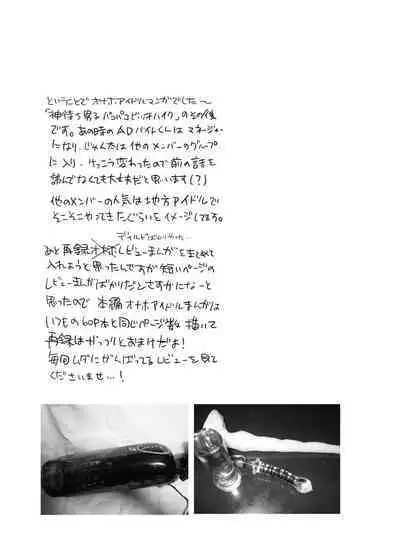 ということで オナホアイドルマンガでした〜
「神待ち男子パコパコビッチハイク」のその後
です。あの時のADバイトくんは マネージャー
になり、じゅんたは他のメンバーのグループ
に入り、けっこう変わったので前の話を
読んでなくても大丈夫だと思います(?)
他のメンバーの人気は地方アイドルで
そこそこやってきたぐらいをイメージしてます。
ディルドばっかりやった…
あと再録オナホレビューまんがをまとめて
入れようと思ったんですが短いページの
レビューまんがばかりだとさすがになーと
思ったので 本編オナホアイドルまんがは
いつもの60P本と同じページ数描いて
再録はがっつりとおまけだよ!
毎回ムダにがんばってるレビューを見て
くださいませ…!